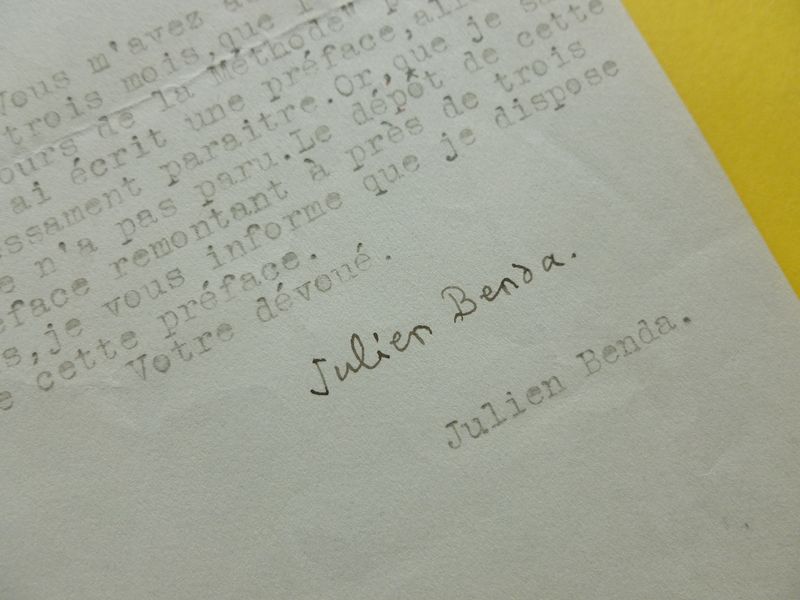 Vous m'avez
trois mois, que
ours de la Méthode"
ai écrit une préface, all
essament paraitre. Or, que je sa
e n'a pas paru. Le dépôt de cette
éface remontant à près de trois
s, je vous informe que je dispose
e cette préface.
Votre dévoué.
Julien Benda.
Julien Benda.